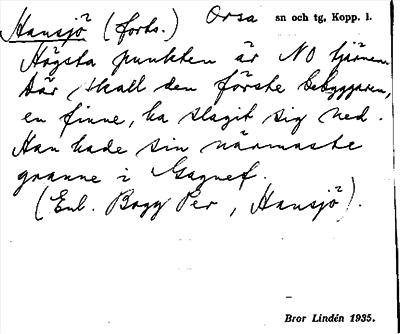 Hansjö (forts.) Orsa sn och tg, Kopp. l.
Högsta punkten är NO tjärnen.
Där skall den förste bebyggaren,
en finne, ha slagit sig ned.
Han hade sin närmaste
granne i Gagnef.
(Enl. Bogg Per, Hansjö).
Bror Lindén 1935.